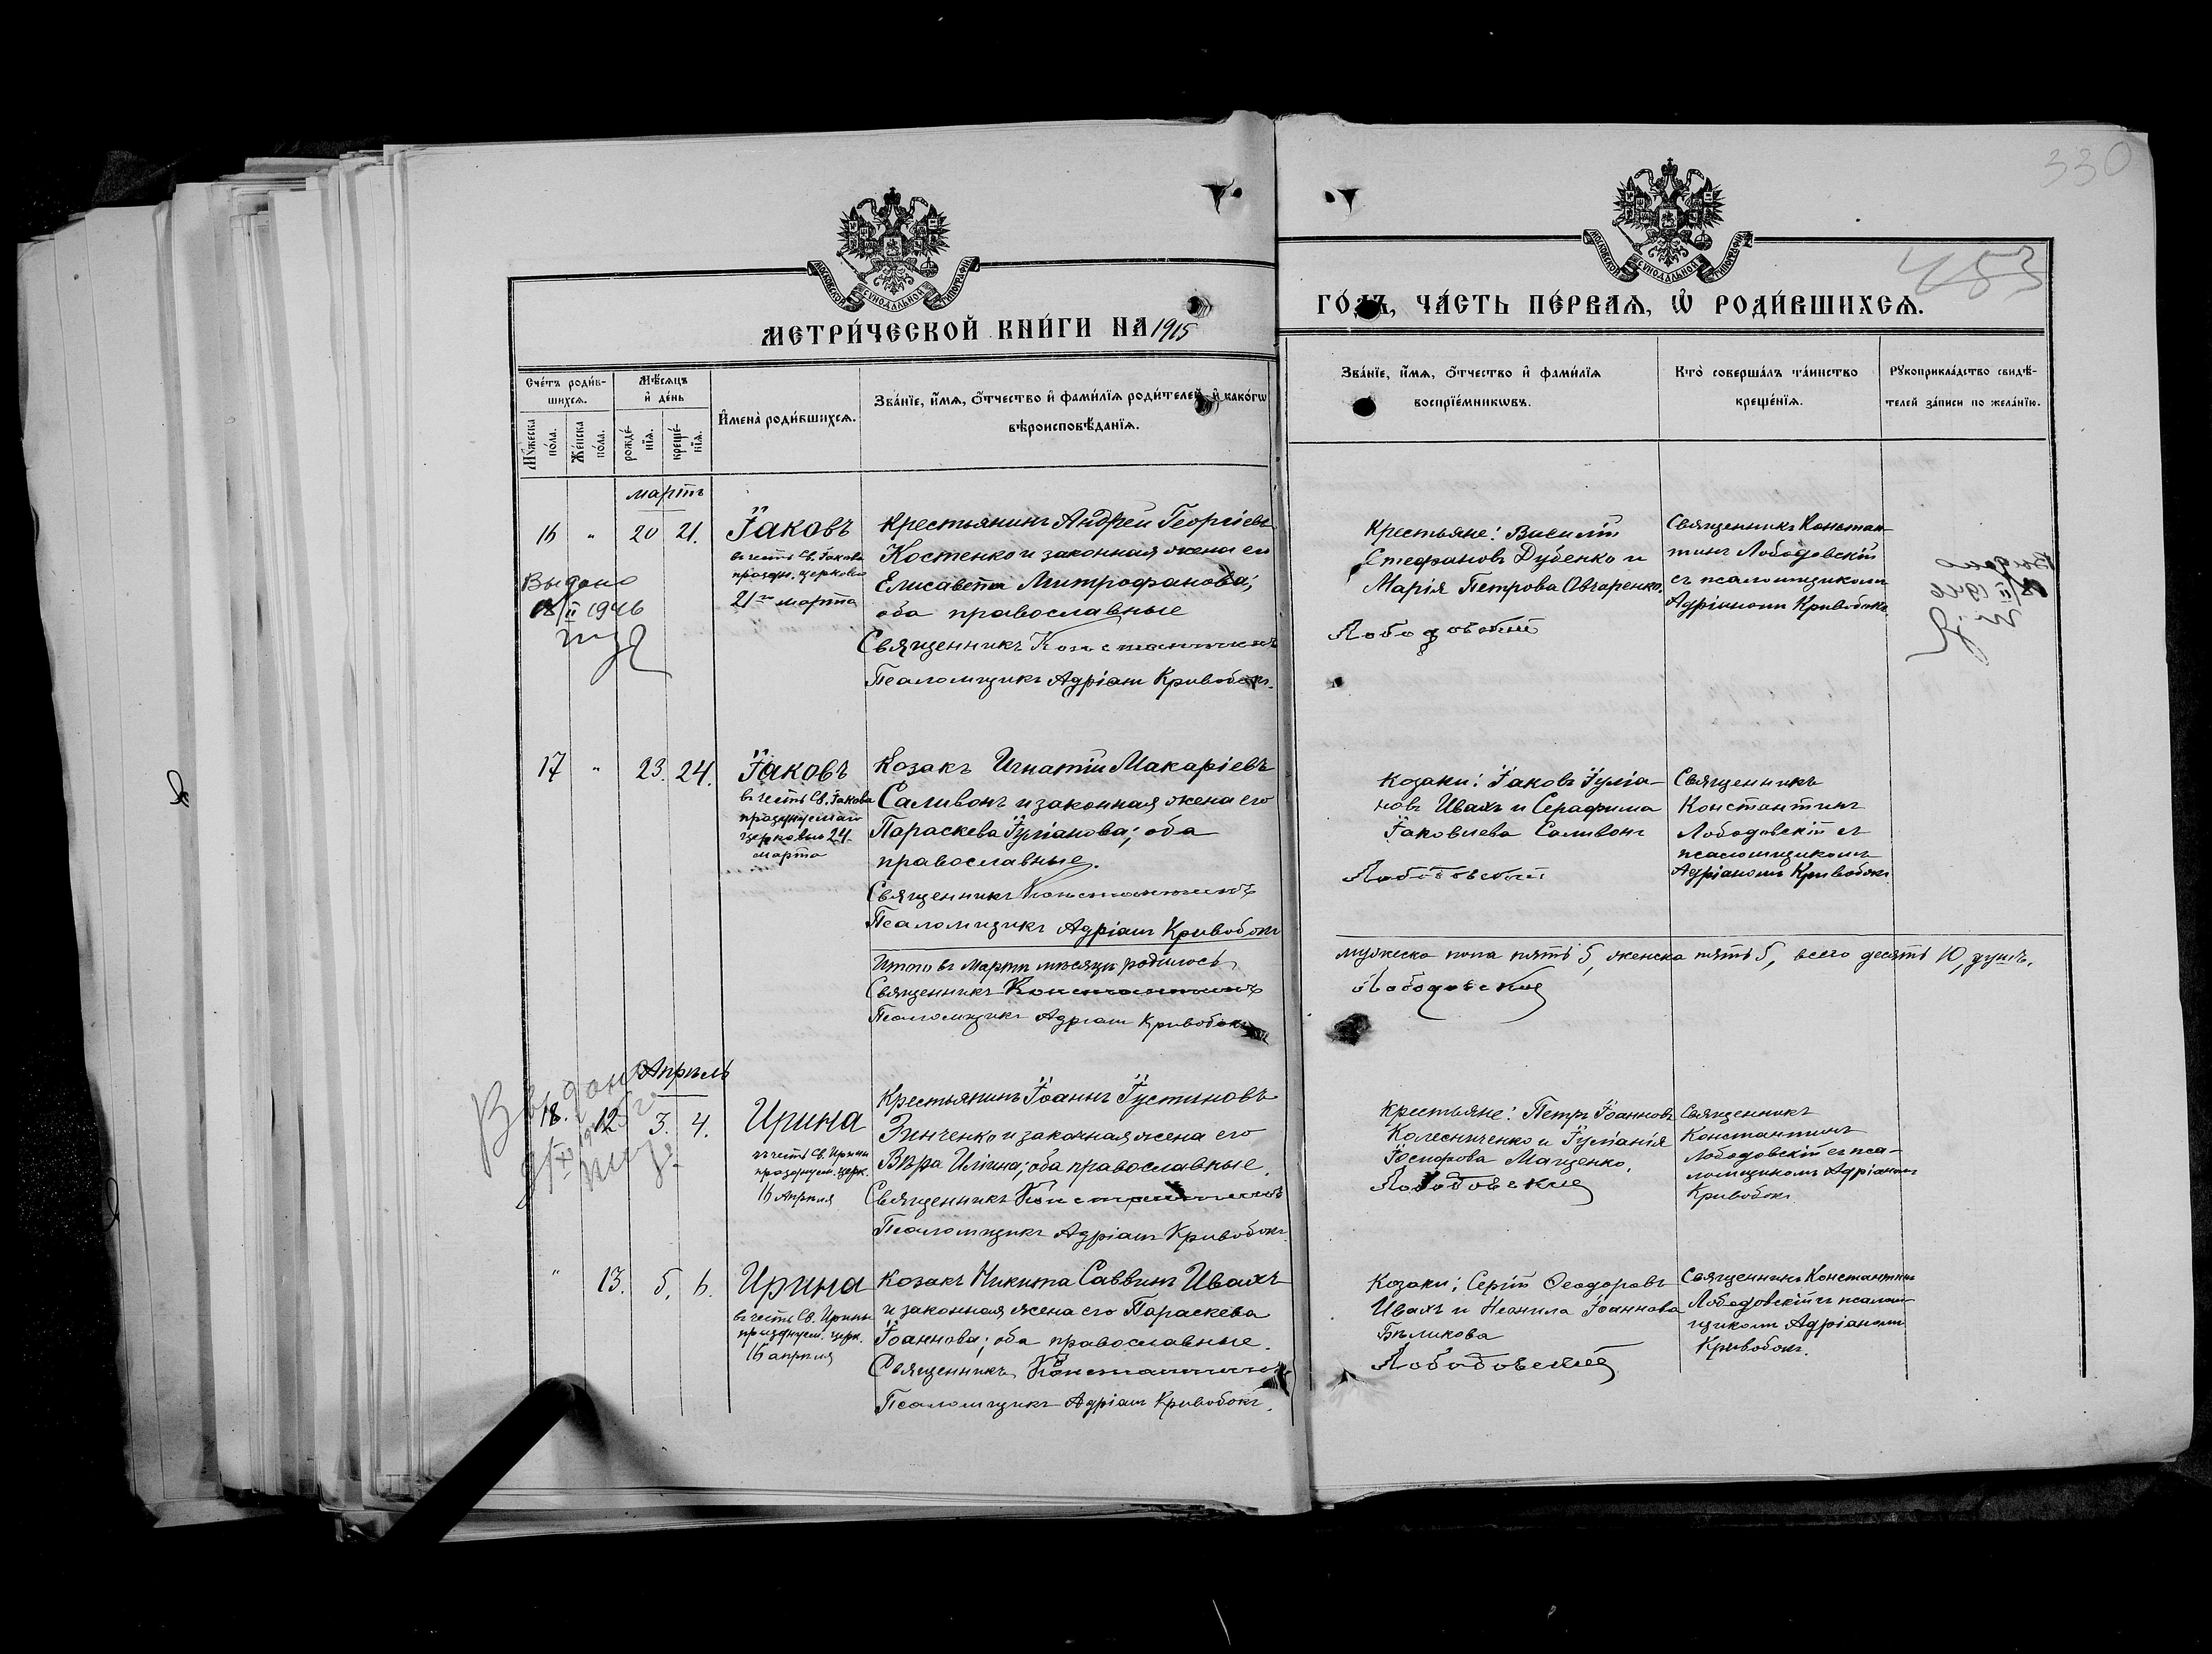 330
453
МОСКОВСКОЙ СѴНОДАЛЬНОЙ ТИПОГРАФІИ
МОСКОВСКОЙ СѴНОДАЛЬНОЙ ТИПОГРАФІИ
МЕТРИ́ЧЕСКОЙ КНИ́ГИ НА 1915
ГО́ДЪ, ЧА́СТЬ ПЕ́РВАѦ, Ѡ҆ РОДИ́ВШИХСѦ.
Сче́тъ роди́в-
шихсѧ.
Мꙋ́жеска по́ла.
Же́нска по́ла.
Мѣ́сѧцъ
и҆ де́нь
рожде́-
нїѧ.
креще́-
нїѧ.
И҆мена̀ роди́вшихсѧ.
Зва́нїе, и҆́мѧ, ѻ҆́тчество и҆ фами́лїѧ роди́телей, и҆ како́гѡ
вѣроисповѣ́данїѧ.
Зва́нїе, и҆́мѧ, ѻ҆́тчество и҆ фами́лїѧ
воспрїе́мникѡвъ.
Кто̀ соверша́лъ та́инство
креще́нїѧ.
Рꙋкоприкла́дство свидѣ́-
телей за́писи по жела́нїю.
мартъ
16 " 20 21.
Выдано
18/II 1946
Іаковъ
въ честь Св. Іакова
праздн. церковію
21го марта
Крестьянинъ Андрей Георгіевъ
Костенко и законная жена его
Елисавета Митрофанова;
оба православные
Священникъ Константинъ
Псаломщикъ Адріанъ Кривобокъ.
Крестьяне: Василій
Стефановъ Дубенко и
Марія Петрова Овчаренко.
Лободовскій
Священникъ Констан-
тинъ Лободовскій
съ псаломщикомъ
Адріаномъ Кривобокъ
17 " 23. 24.
Іаковъ
въ честь Св. Іакова
празднуемаго
церковью 24
марта
Козакъ Игнатій Макаріевъ
Саливонъ и законная жена его
Параскева Іуліанова; оба
православные.
Священникъ Константинъ
Псаломщикъ Адріанъ Кривобокъ
Козаки: Іаковъ Іуліа-
новъ Ивахъ и Серафима
Іаковлева Саливонъ
Лободовскій
Священникъ
Константинъ
Лободовскій съ
псаломщикомъ
Адріаномъ Кривобокъ
Итого въ Мартѣ мѣсяцѣ родилось
мужеска пола пять 5, женска пять 5, всего десять 10, душъ.
Священникъ Константинъ
Лободовскій
Псаломщикъ Адріанъ Кривобокъ
Апрѣль
Выдано
18. 12 3. 4.
Ирина
въ честь Св. Ирины
празднуем. церк.
16 Апрѣля
Крестьянинъ Іоаннъ Іустиновъ
Зинченко и законная жена его
Вѣра Иліина; оба православные.
Священникъ Константинъ
Псаломщикъ Адріанъ Кривобокъ.
Крестьяне: Петръ Іоанновъ
Колесниченко и Іуліанія
Іосифова Мащенко.
Лободовскій
Священникъ
Константинъ
Лободовскій съ пса-
ломщикомъ Адріаномъ
Кривобокъ.
" 13. 5. 6.
Ирина
въ честь Св. Ирины
празднуем. церк.
16 апрѣля
Козакъ Никита Саввинъ Ивахъ
и законная жена его Параскева
Іоаннова; оба православные.
Священникъ Константинъ
Псаломщикъ Адріанъ Кривобокъ.
Козаки: Сергій Ѳеодоровъ
Ивахъ и Неонила Іоаннова
Бѣликова
Лободовскій
Священникъ Константинъ
Лободовскій съ псалом-
щикомъ Адріаномъ
Кривобокъ.